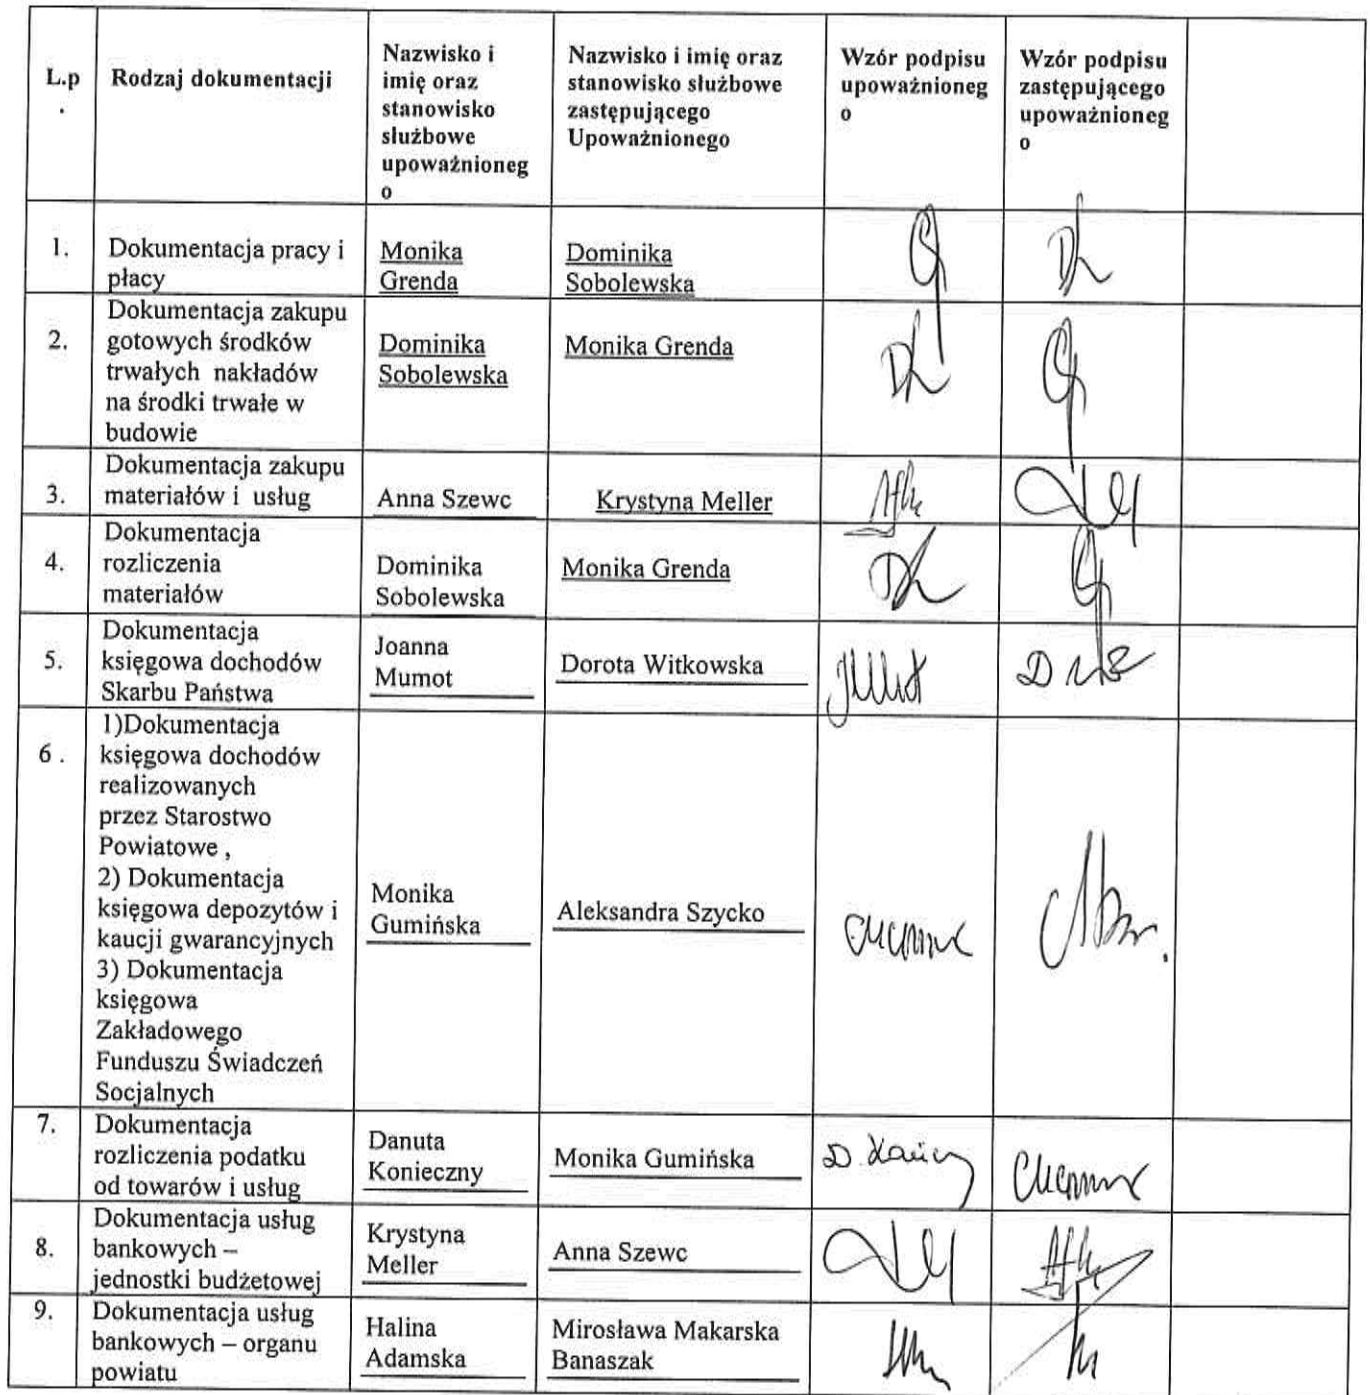 L.p
.
Rodzaj dokumentacji
Nazwisko i
imię oraz
stanowisko
służbowe
upoważnioneg
o
Nazwisko i imię oraz
stanowisko służbowe
zastępującego
Upoważnionego
Wzór podpisu
upoważnioneg
o
Wzór podpisu
zastępującego
upoważnioneg
o
1.
Dokumentacja pracy i
płacy
Monika
Grenda
Dominika
Sobolewska
2.
Dokumentacja zakupu
gotowych środków
trwałych nakładów
na środki trwałe w
budowie
Dominika
Sobolewska
Monika Grenda
3.
Dokumentacja zakupu
materiałów i usług
Anna Szewc
Krystyna Meller
4.
Dokumentacja
rozliczenia
materiałów
Dominika
Sobolewska
Monika Grenda
5.
Dokumentacja
księgowa dochodów
Skarbu Państwa
Joanna
Mumot
Dorota Witkowska
6 .
1)Dokumentacja
księgowa dochodów
realizowanych
przez Starostwo
Powiatowe ,
2) Dokumentacja
księgowa depozytów i
kaucji gwarancyjnych
3) Dokumentacja
księgowa
Zakładowego
Funduszu Świadczeń
Socjalnych
Monika
Gumińska
Aleksandra Szycko
7.
Dokumentacja
rozliczenia podatku
od towarów i usług
Danuta
Konieczny
Monika Gumińska
8.
Dokumentacja usług
bankowych –
jednostki budżetowej
Krystyna
Meller
Anna Szewc
9.
Dokumentacja usług
bankowych – organu
powiatu
Halina
Adamska
Mirosława Makarska
Banaszak